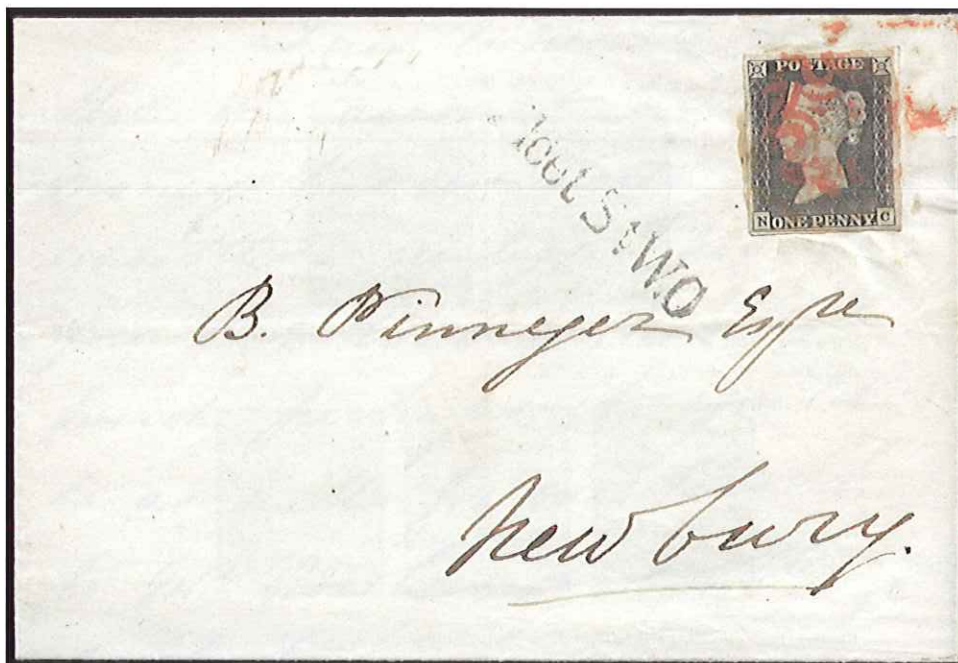 POSTAGE
N ONE PENNY C
B. Pinneger Esqre
Newbury.